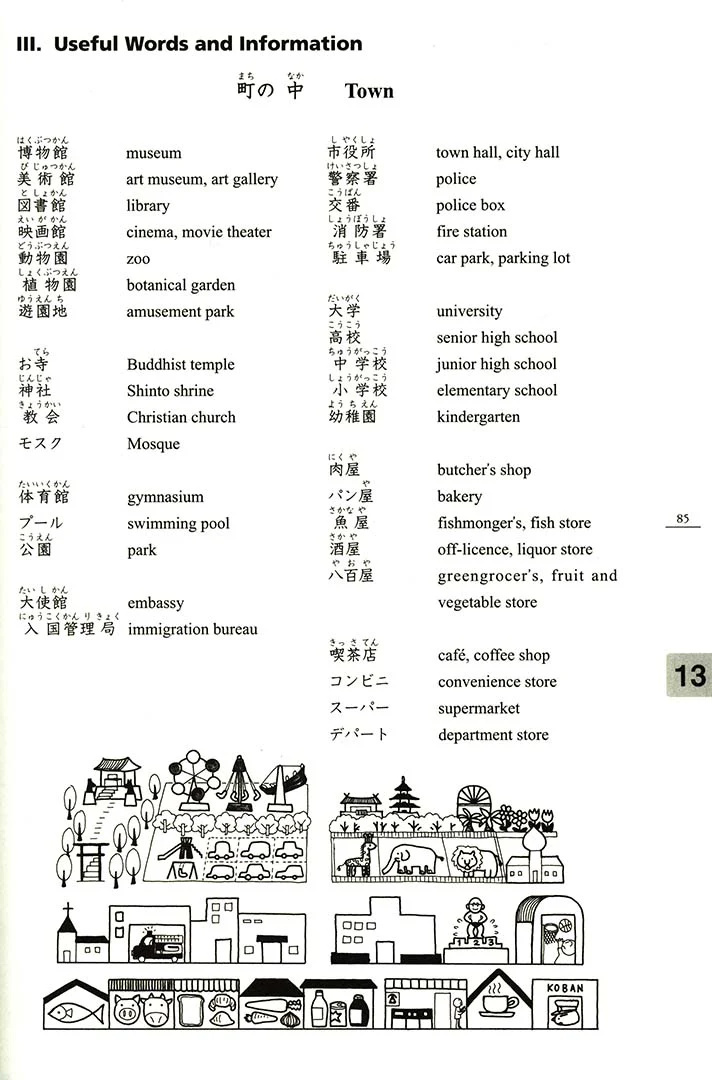 III. Useful Words and Information
まち なか
町の 中 Town
はくぶつかん
博物館 museum
びじゅつかん
美術館 art museum, art gallery
としょかん
図書館 library
えいがかん
映画館 cinema, movie theater
どうぶつえん
動物園 zoo
しょくぶつえん
植物園 botanical garden
ゆうえんち
遊園地 amusement park
てら
お寺 Buddhist temple
じんじゃ
神社 Shinto shrine
きょうかい
教会 Christian church
モスク Mosque
たいいくかん
体育館 gymnasium
プール swimming pool
こうえん
公園 park
たいしかん
大使館 embassy
にゅうこくかんりきょく
入国管理局 immigration bureau
しやくしょ
市役所 town hall, city hall
けいさつしょ
警察署 police
こうばん
交番 police box
しょうぼうしょ
消防署 fire station
ちゅうしゃじょう
駐車場 car park, parking lot
だいがく
大学 university
こうこう
高校 senior high school
ちゅうがっこう
中学校 junior high school
しょうがっこう
小学校 elementary school
ようちえん
幼稚園 kindergarten
にくや
肉屋 butcher's shop
や
パン屋 bakery
さかなや
魚屋 fishmonger's, fish store
さかや
酒屋 off-licence, liquor store
やおや
八百屋 greengrocer's, fruit and
vegetable store
きっさてん
喫茶店 café, coffee shop
コンビニ convenience store
スーパー supermarket
デパート department store
85
13
1 2 3
KOBAN